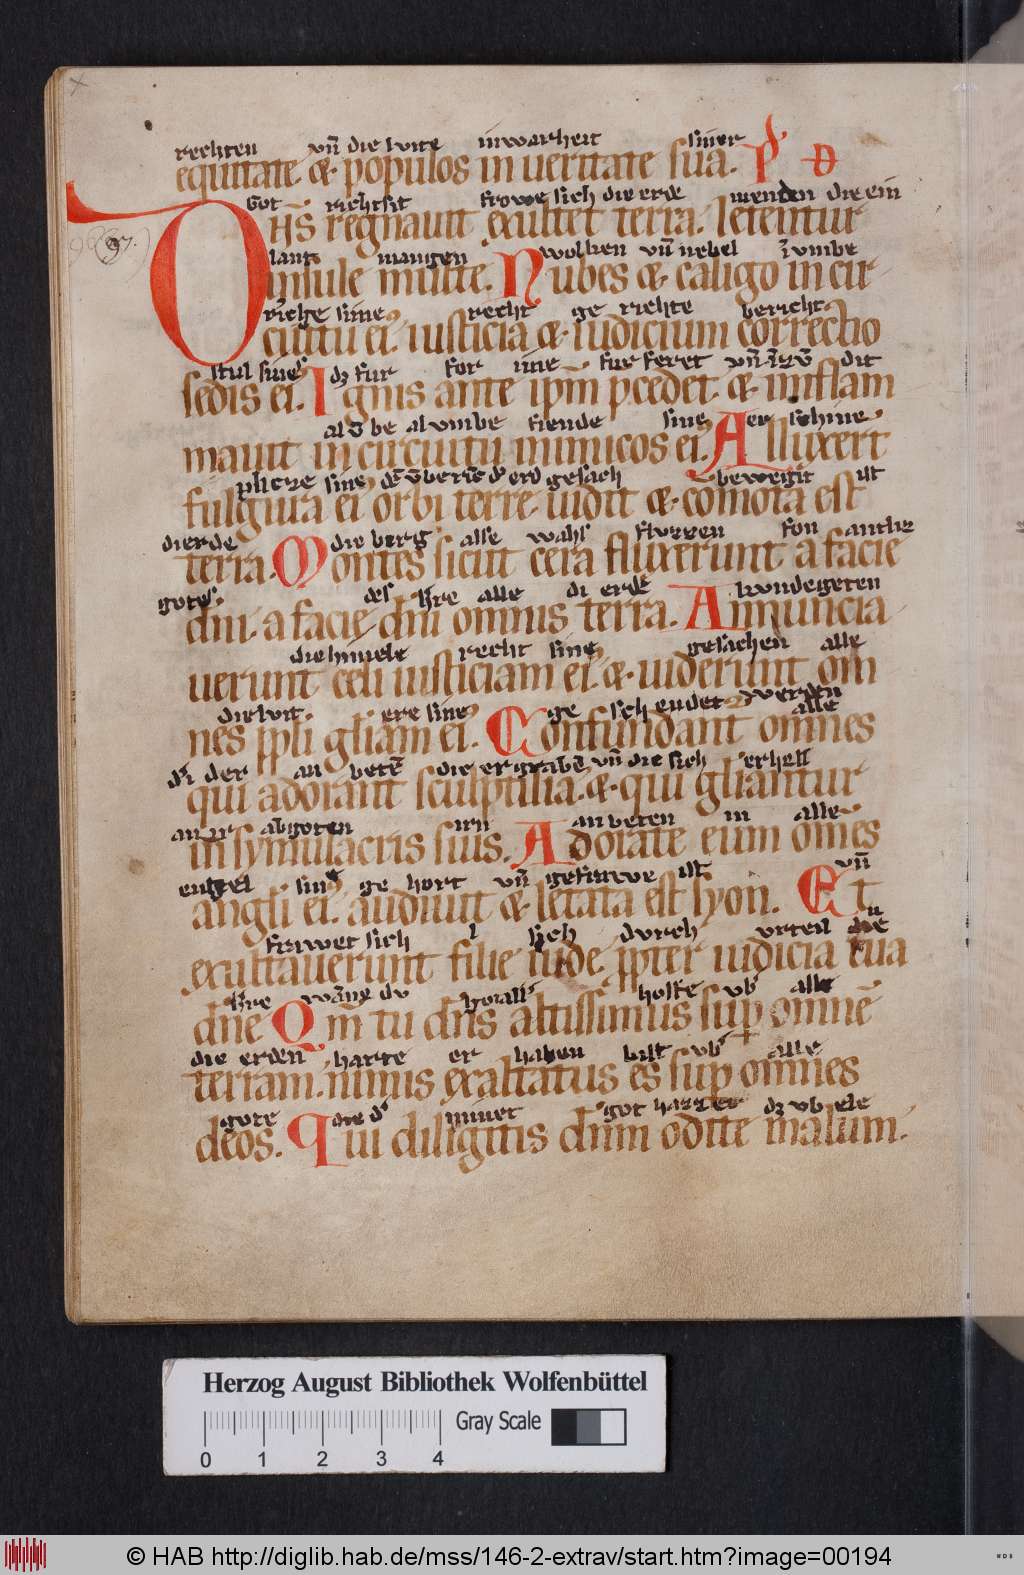 rechten vn̄ die lute inwarheit siner
equitate. & populos in ueritate sua. P D
Got richsit frowe sich die erde menden die ein
DN̄S regnauit exultet terra. letentur
97.
lant mangen wolken vn̄ nebel vmbe
insule multe. Nubes & caligo in cir
riche sine recht ge richte bericht
cuitu ei᾿ iusticia & iudicium correctio
stul sine dz fur for ime fur feret vn̄ dit
sedis ei᾿. Ignis ante ip̄m p̄cedet. & inflam
al vmbe fiende sine er schine
mauit in circuitu inimicos ei᾿. Alluxert̄
sine erd gesach beweigit ist
fulgura ei᾿ orbi terre. uidit & com̄ota est
dierde die berg alse wahs fluzzen fon
terra. Montes sicut cera fluxerunt a facie
gotes des h̄re alle di erde
dn̄i. a facie dn̄i omnis terra. Annuncia
die himele recht sine gesachen alle
uerunt celi iusticiam ei᾿. & uiderunt om
werden
die lut ere sine ge sich endet alle
nes pp̄li gl̄iam ei᾿. Confundant᾿ omnes
di der an betē die ergrabē vn̄ die sich erhell
qui adorant sculptilia. & qui gl̄iantur
an ir abgoten irn an beten in alle
in symulacris suis. Adorate eum om̄es
engel sin ge hort vn̄ gefrowe ist vn̄
angli ei᾿. audiuit & letata est syon. Et
frowet sich sich durch urteil die
exultauerunt filie iude. pp̄ter iudicia tua
h̄re wāne du holste vb alle
dn̄e Qm̄ tu dn̄s altissimus sup̄ omnē
die erden harte er haben bist vb alle
terram. nimis exaltatus es sup̄ omnes
gote die minet got hazzet dz vbele
deos. Qui diligitis dn̄m odite malum.
Herzog August Bibliothek Wolfenbüttel
Gray Scale
0 1 2 3 4
© HAB http://diglib.hab.de/mss/146-2-extrav/start.htm?image=00194